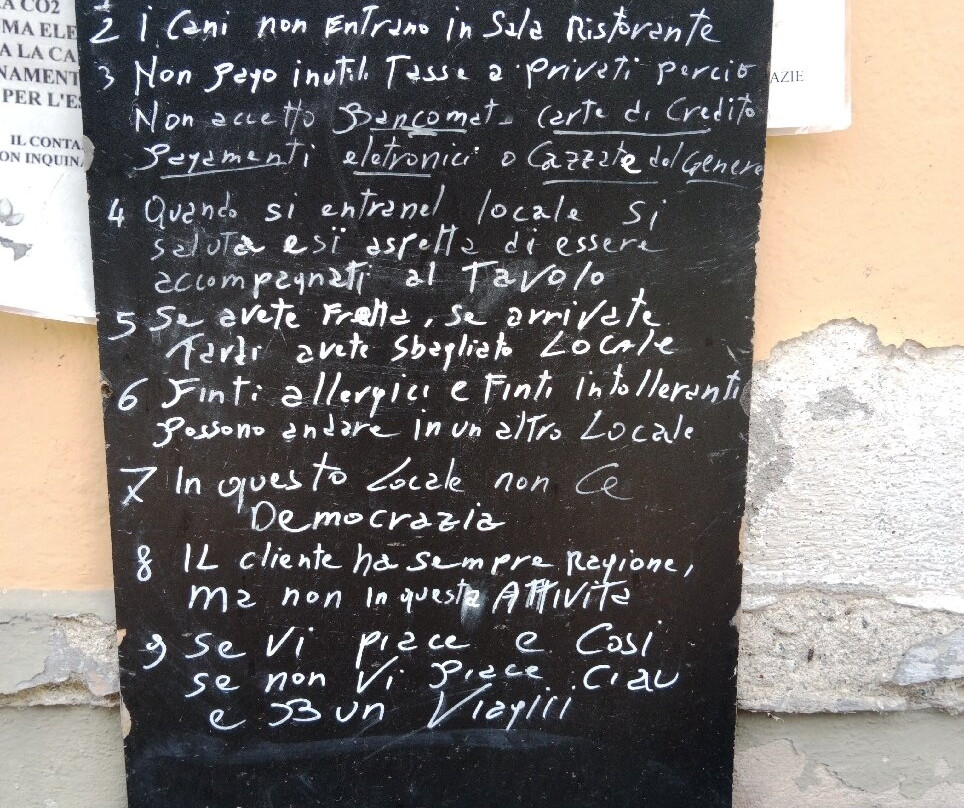 A CO2
MA ELE
A LA CA
NAMENT
PER L'ES
IL CONTA
ON INQUINA
AZIE
2 i Cani non Entrano in Sala Ristorante
3 Non Pago inutili Tasse a Privati Percio
Non accetto Bancomat carte di Credito
Pagamenti eletronici o Cazzate del Genere
4 Quando si entranel locale Si
saluta e si aspetta di essere
accompagnati al TAVOLO
5 Se avete Fretta, se arrivate
Tardi avete Sbagliato LOCALE
6 Finti allergici e Finti intolleranti
Possono andare in un altro Locale
7 In questo Locale non Ce
Democrazia
8 IL cliente ha sempre Ragione,
Ma non in questa Attivita
9 se Vi piace e Cosi
se non Vi Piace Ciau
e Bun Viagiii